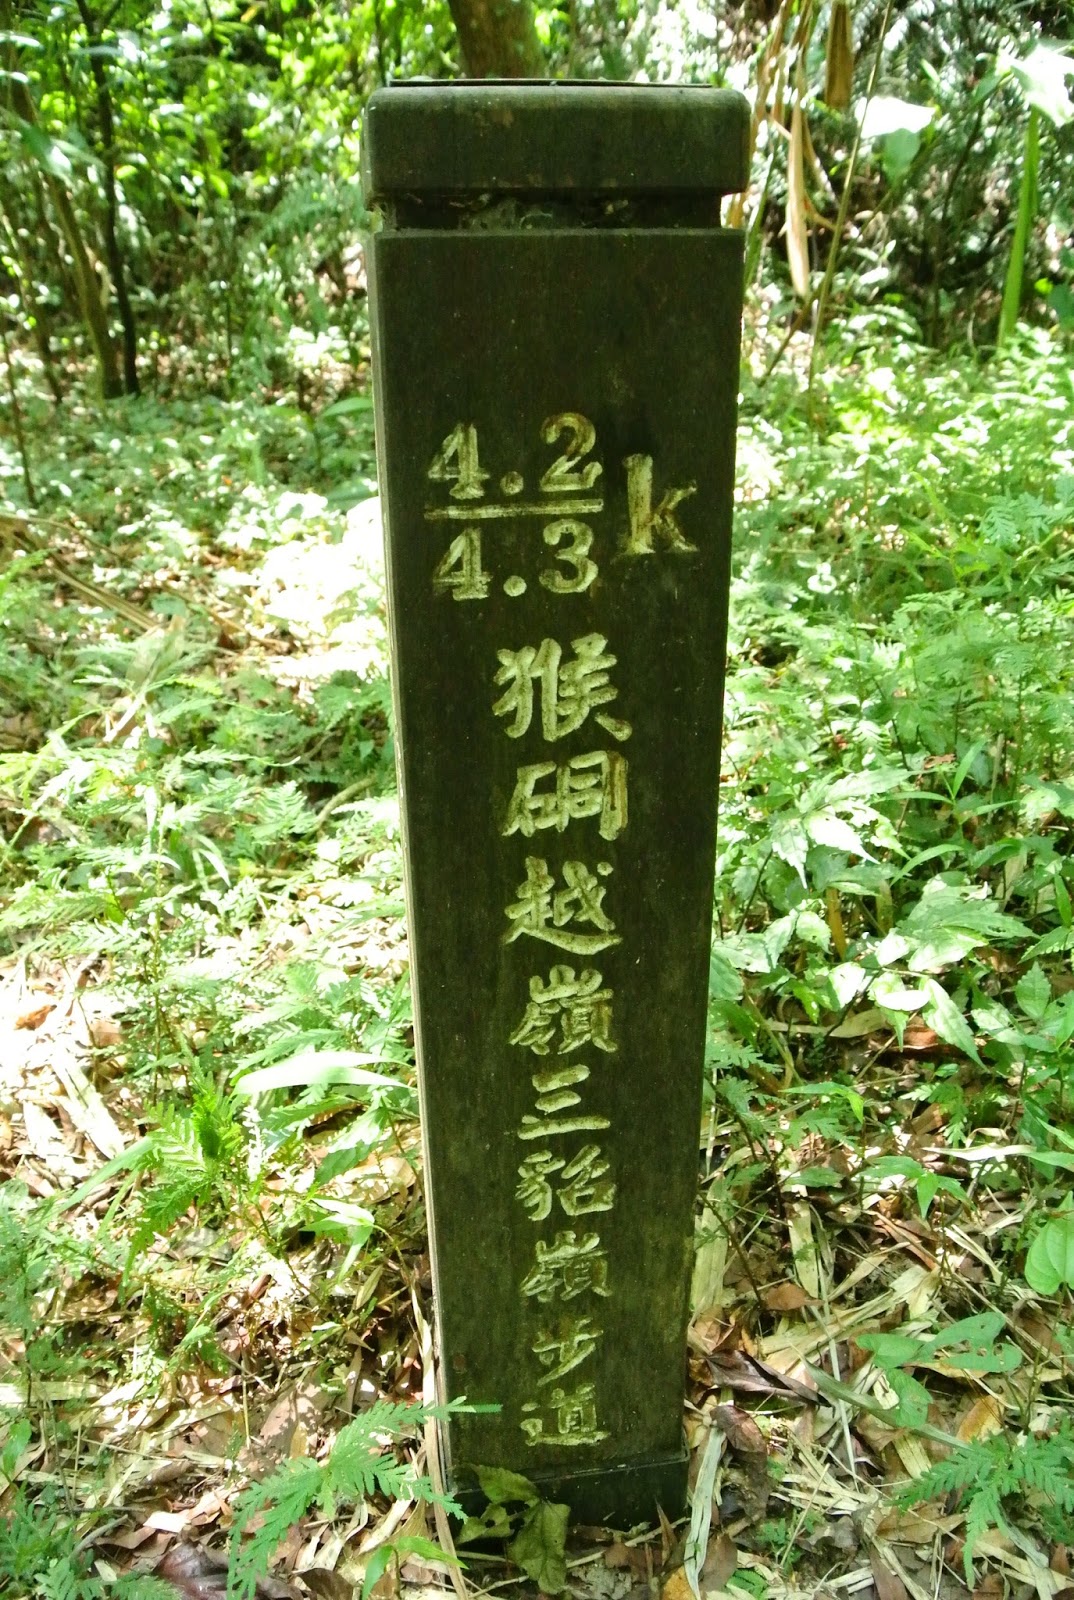 4.2
4.3
k
猴硐越嶺三貂嶺步道